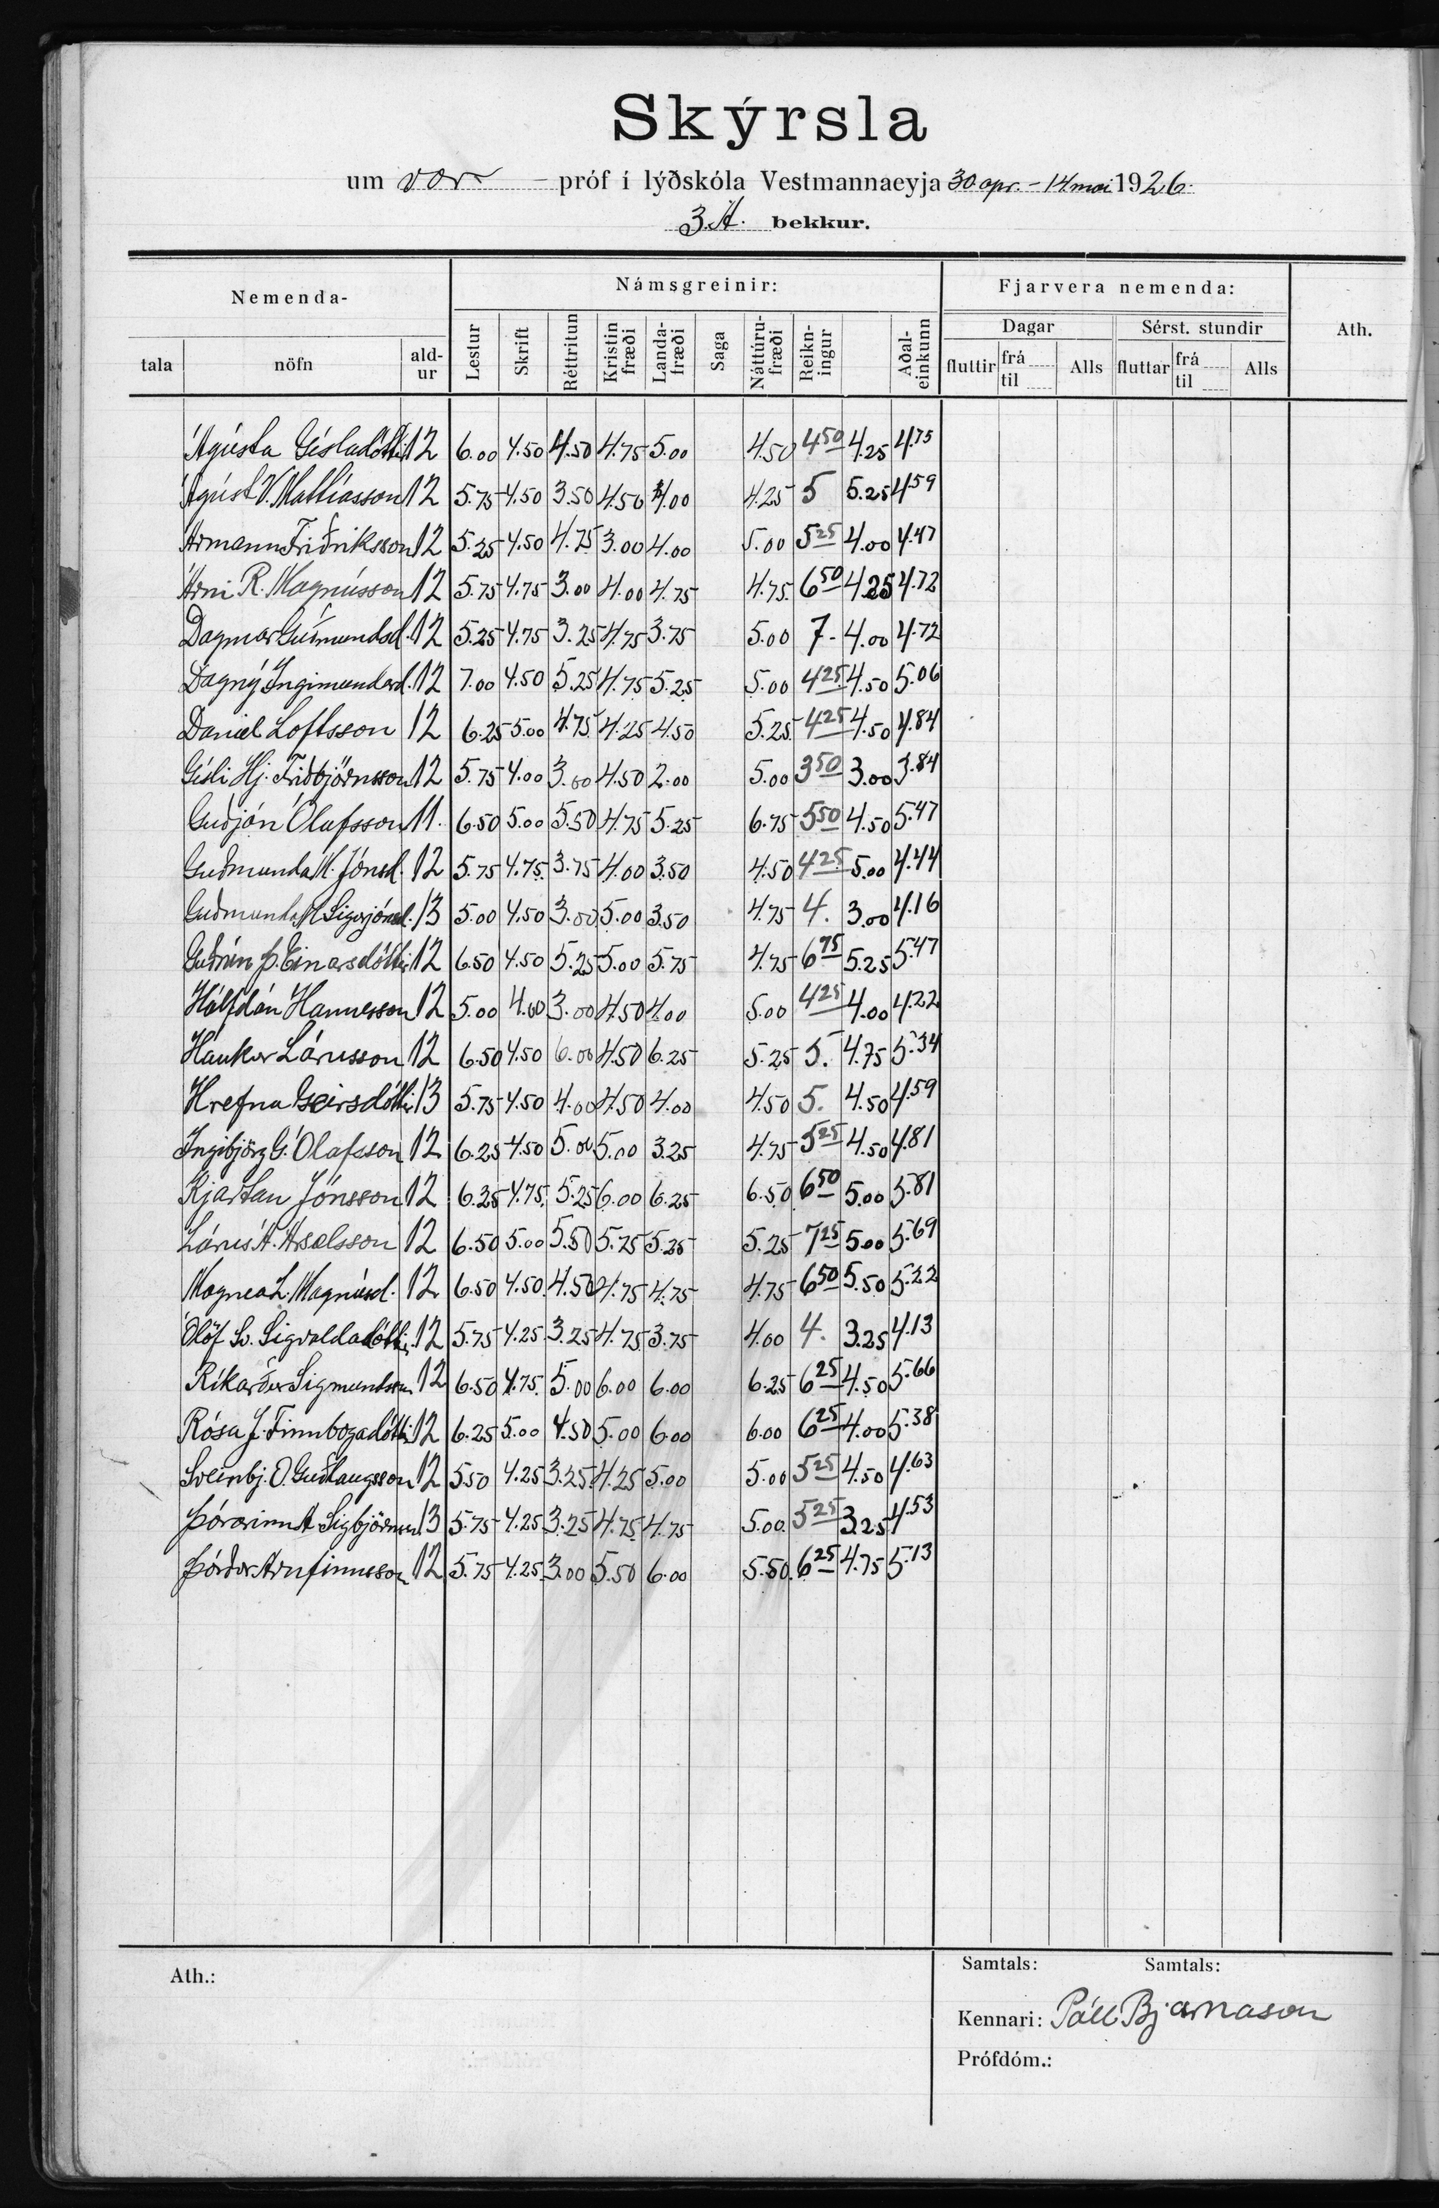 Skýrsla
um vor - próf í lýðskóla Vestmannaeyja 30 apr. - 14 mai 1926.
3.A. bekkur.
Nemenda- Námsgreinir: Fjarvera nemenda: Ath.
tala nöfn ald-ur Lestur Skrift Réttritun Kristin fræði Landa-fræði Saga Náttúru-fræði Reikn-ingur Aðal-einkunn Dagar Sérst. stundir
fluttir frá til Alls fluttar frá til Alls
Ágústa Gísladóttir 12 6.00 4.50 4.50 4.75 5.00 4.50 4 50 4.25 4.75
Ágúst V. Matthíasson 12 5.75 4.50 3.50 4.50 4.00 4.25 5 5.25 4.59
Ármann Friðriksson 12 5.25 4.50 4.75 3.00 4.00 5.00 5 25 4.00 4.47
Árni R. Magnússon 12 5.75 4.75 3.00 4.00 4.75 4.75 6 50 4.25 4.72
Dagmar Guðmundsd. 12 5.25 4.75 3.25 4.75 3.75 5.00 7- 4.00 4.72
Dagný Ingimundard. 12 7.00 4.50 5.25 4.75 5.25 5.00 4 25 4.50 5.06
Daníel Loftsson 12 6.25 5.00 4.75 4.25 4.50 5.25 4 25 4.50 4.84
Gísli Hj. Friðbjörnsson 12 5.75 4.00 3.00 4.50 2.00 5.00 3 50 3.00 3.84
Guðjón Ólafsson 11. 6.50 5.00 5.50 4.75 5.25 6.75 5 50 4.50 5.47
Guðmunda M. Jónsd. 12 5.75 4.75 3.75 4.00 3.50 4.50 4 25 5.00 4.44
Guðmunda M Sigurjónsd. 13 5.00 4.50 3.00 5.00 3.50 4.75 4. 3.00 4.16
Guðrún Þ. Einarsdóttir 12 6.50 4.50 5.25 5.00 5.75 4.75 6 75 5.25 5.47
Hálfdán Hannesson 12 5.00 4.00 3.00 4.50 4.00 5.00 4 25 4.00 4.22
Haukur Lárusson 12 6.50 4.50 6.00 4.50 6.25 5.25 5. 4.75 5.34
Hrefna Geirsdóttir 13 5.75 4.50 4.00 4.50 4.00 4.50 5. 4.50 4.59
Ingibjörg G. Ólafsson 12 6.25 4.50 5.00 5.00 3.25 4.75 5 25 4.50 4.81
Kjartan Jónsson 12 6.25 4.75 5.25 6.00 6.25 6.50 6 50 5.00 5.81
Lárus A. Ársælsson 12 6.50 5.00 5.50 5.75 5.25 5.25 7 25 5.00 5.69
Magnea L. Magnúsd. 12 6.50 4.50 4.50 4.75 4.75 4.75 6 50 5.50 5.22
Ólöf Sv. Sigvaldadóttir 12 5.75 4.25 3.25 4.75 3.75 4.00 4. 3.25 4.13
Ríkarður Sigmundsson 12 6.50 4.75 5.00 6.00 6.00 6.25 6 25 4.50 5.66
Rósa J. Finnbogadóttir 12 6.25 5.00 4.50 5.00 6.00 6.00 6 25 4.00 5.38
Sveinbj. Ó. Guðlaugsson 12 5.50 4.25 3.25 4.25 5.00 5.00 5 25 4.50 4.63
Þórarinn A Sigbjörnsson 13 5.75 4.25 3.25 4.75 4.75 5.00 5 25 3.25 4.53
Þórður Arnfinnsson 12 5.75 4.25 3.00 5.50 6.00 5.50 6 25 4.75 5.13
Ath.: Samtals: Samtals:
Kennari: Páll Bjarnason
Prófdóm.: